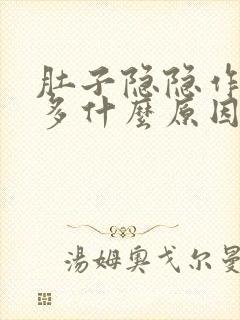 肚子隐隐作
多什麼原因
湯姆奧戈尔曼